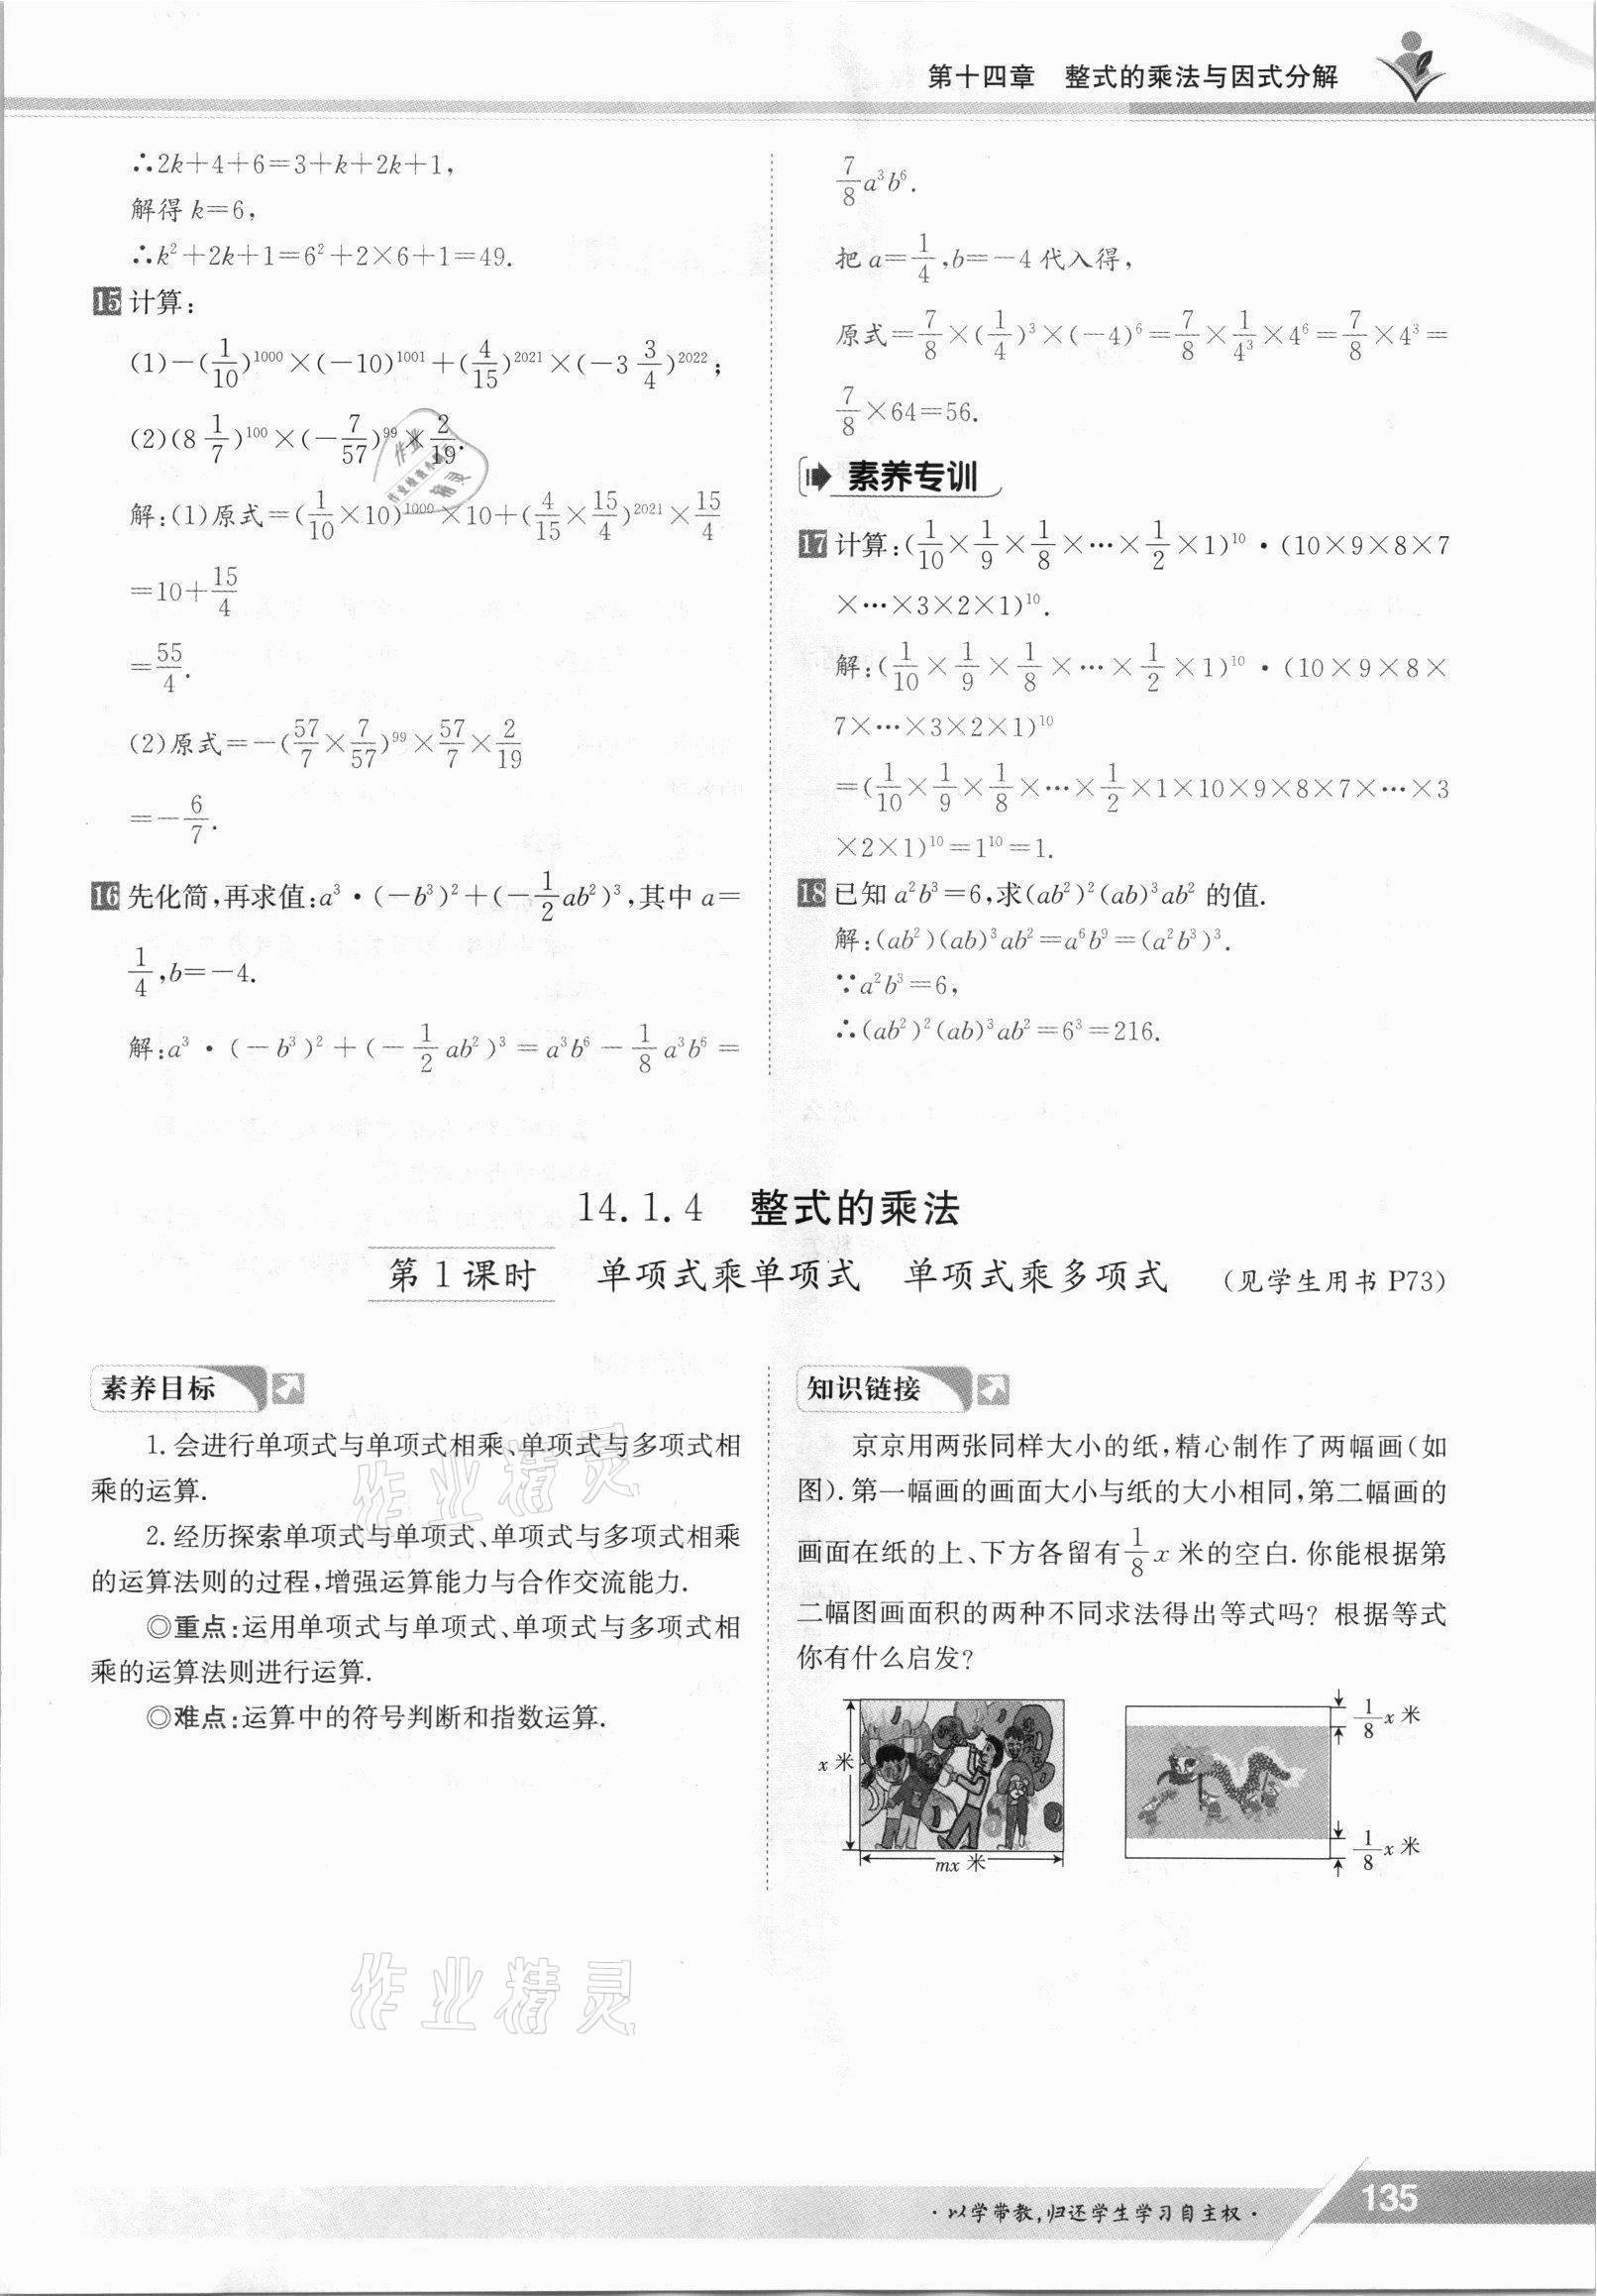 第十四章　整式的乘法与因式分解
∴2k+4+6=3+k+2k+1,
解得 k=6,
∴k²+2k+1=6²+2×6+1=49.
15 计算:
(1)-(1/10)^1000×(-10)^1001+(4/15)^2021×(-3 3/4)^2022;
(2)(8 1/7)^100×(-7/57)^99×2/19.
解:(1)原式=(1/10×10)^1000×10+(4/15×15/4)^2021×15/4
=10+15/4
=55/4.
(2)原式=-(57/7×7/57)^99×57/7×2/19
=-6/7.
16 先化简,再求值:a³·(-b³)²+(-1/2ab²)³,其中 a=
1/4,b=-4.
解:a³·(-b³)²+(-1/2ab²)³=a³b⁶-1/8a³b⁶=
7/8a³b⁶.
把 a=1/4,b=-4 代入得,
原式=7/8×(1/4)³×(-4)⁶=7/8×1/4³×4⁶=7/8×4³=
7/8×64=56.
素养专训
17 计算:(1/10×1/9×1/8×…×1/2×1)^10·(10×9×8×7
×…×3×2×1)^10.
解:(1/10×1/9×1/8×…×1/2×1)^10·(10×9×8×
7×…×3×2×1)^10
=(1/10×1/9×1/8×…×1/2×1×10×9×8×7×…×3
×2×1)^10=1^10=1.
18 已知 a²b³=6,求(ab²)²(ab)³ab² 的值.
解:(ab²)(ab)³ab²=a⁶b⁹=(a²b³)³.
∵a²b³=6,
∴(ab²)²(ab)³ab²=6³=216.
14.1.4　整式的乘法
第 1 课时　单项式乘单项式　单项式乘多项式　(见学生用书 P73)
素养目标
1. 会进行单项式与单项式相乘、单项式与多项式相
乘的运算.
2. 经历探索单项式与单项式、单项式与多项式相乘
的运算法则的过程,增强运算能力与合作交流能力.
◎重点:运用单项式与单项式、单项式与多项式相
乘的运算法则进行运算.
◎难点:运算中的符号判断和指数运算.
知识链接
京京用两张同样大小的纸,精心制作了两幅画(如
图).第一幅画的画面大小与纸的大小相同,第二幅画的
画面在纸的上、下方各留有1/8x 米的空白. 你能根据第
二幅图画面积的两种不同求法得出等式吗? 根据等式
你有什么启发?
x 米
mx 米
1/8x 米
1/8x 米
作业精灵
作业精灵
·以学带教,归还学生学习自主权·
135